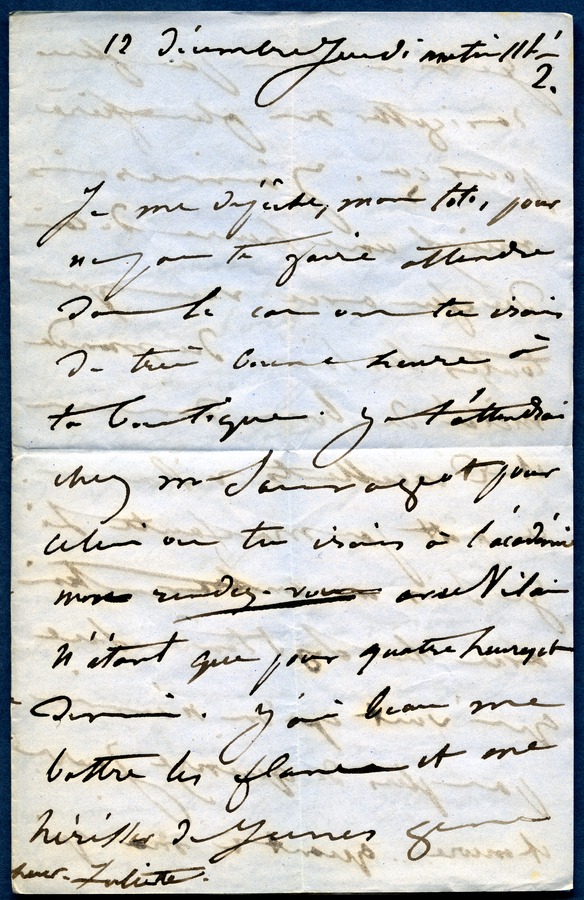 12 Décembre Jeudi matin 11h
2.
Je me dépêche, mon toto, pour
ne pas te faire attendre
dans le cas où tu irais
de très bonne heure à
ta boutique. Je t'attendrai
chez Mr Sauvageot pour
celui où tu irais à l'académie
mon rendez-vous avec Vilain
n'étant que pour quatre heures et
demie. J'ai beau me
battre les flancs et me
hérisser de
Juliette.